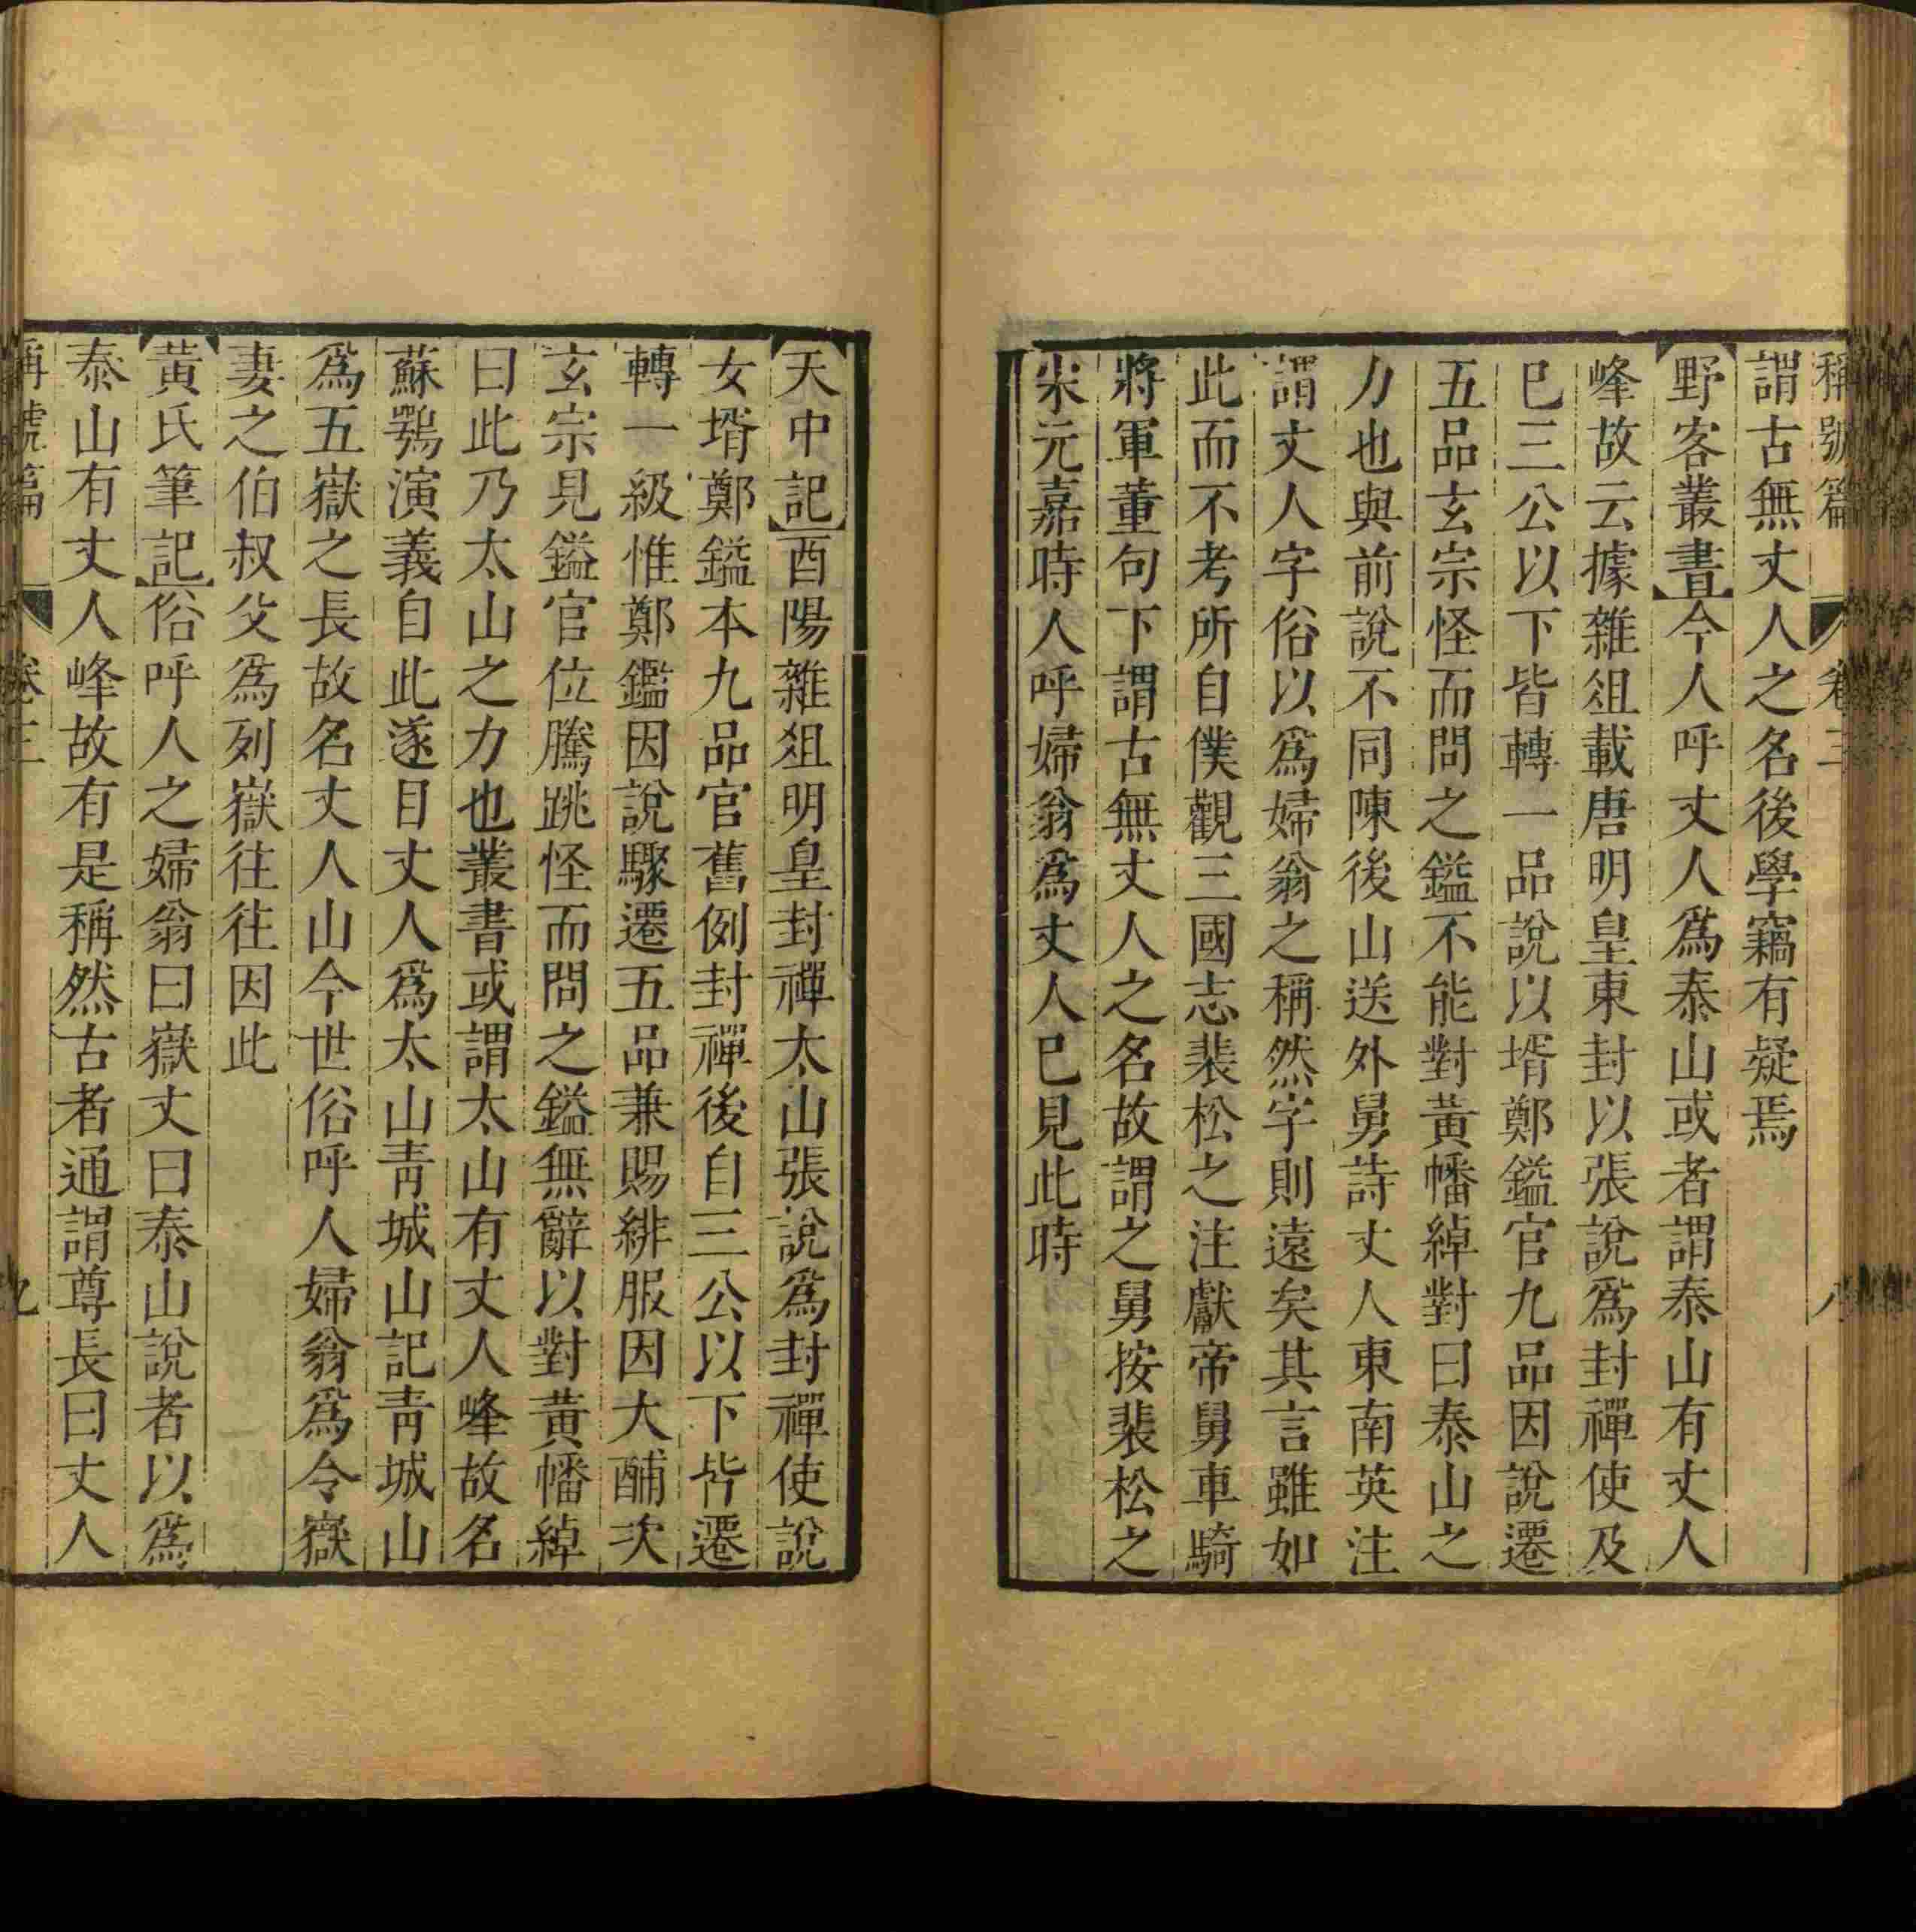 稱號篇 卷三 八
謂古無丈人之名後學竊有疑焉
野客叢書今人呼丈人為泰山或者謂泰山有丈人
峰故云據雜俎載唐明皇東封以張說為封禪使及
巳三公以下皆轉一品說以壻鄭鎰官九品因說遷
五品玄宗怪而問之鎰不能對黃幡綽對曰泰山之
力也與前說不同陳後山送外舅詩丈人東南英注
謂丈人字俗以為婦翁之稱然字則遠矣其言雖如
此而不考所自僕觀三國志裴松之注獻帝舅車騎
將軍董句下謂古無丈人之名故謂之舅按裴松之
宋元嘉時人呼婦翁為丈人巳見此時
天中記酉陽雜俎明皇封禪太山張說為封禪使說
女壻鄭鎰本九品官舊例封禪後自三公以下皆遷
轉一級惟鄭鑑因說驟遷五品兼賜緋服因大酺次
玄宗見鎰官位騰跳怪而問之鎰無辭以對黃幡綽
曰此乃太山之力也叢書或謂太山有丈人峰故名
蘇鶚演義自此遂目丈人為太山靑城山記靑城山
為五嶽之長故名丈人山今世俗呼人婦翁為令嶽
妻之伯叔父為列嶽往往因此
黃氏筆記俗呼人之婦翁曰嶽丈曰泰山說者以為
泰山有丈人峰故有是稱然古者通謂尊長曰丈人
稱號篇 卷三 九